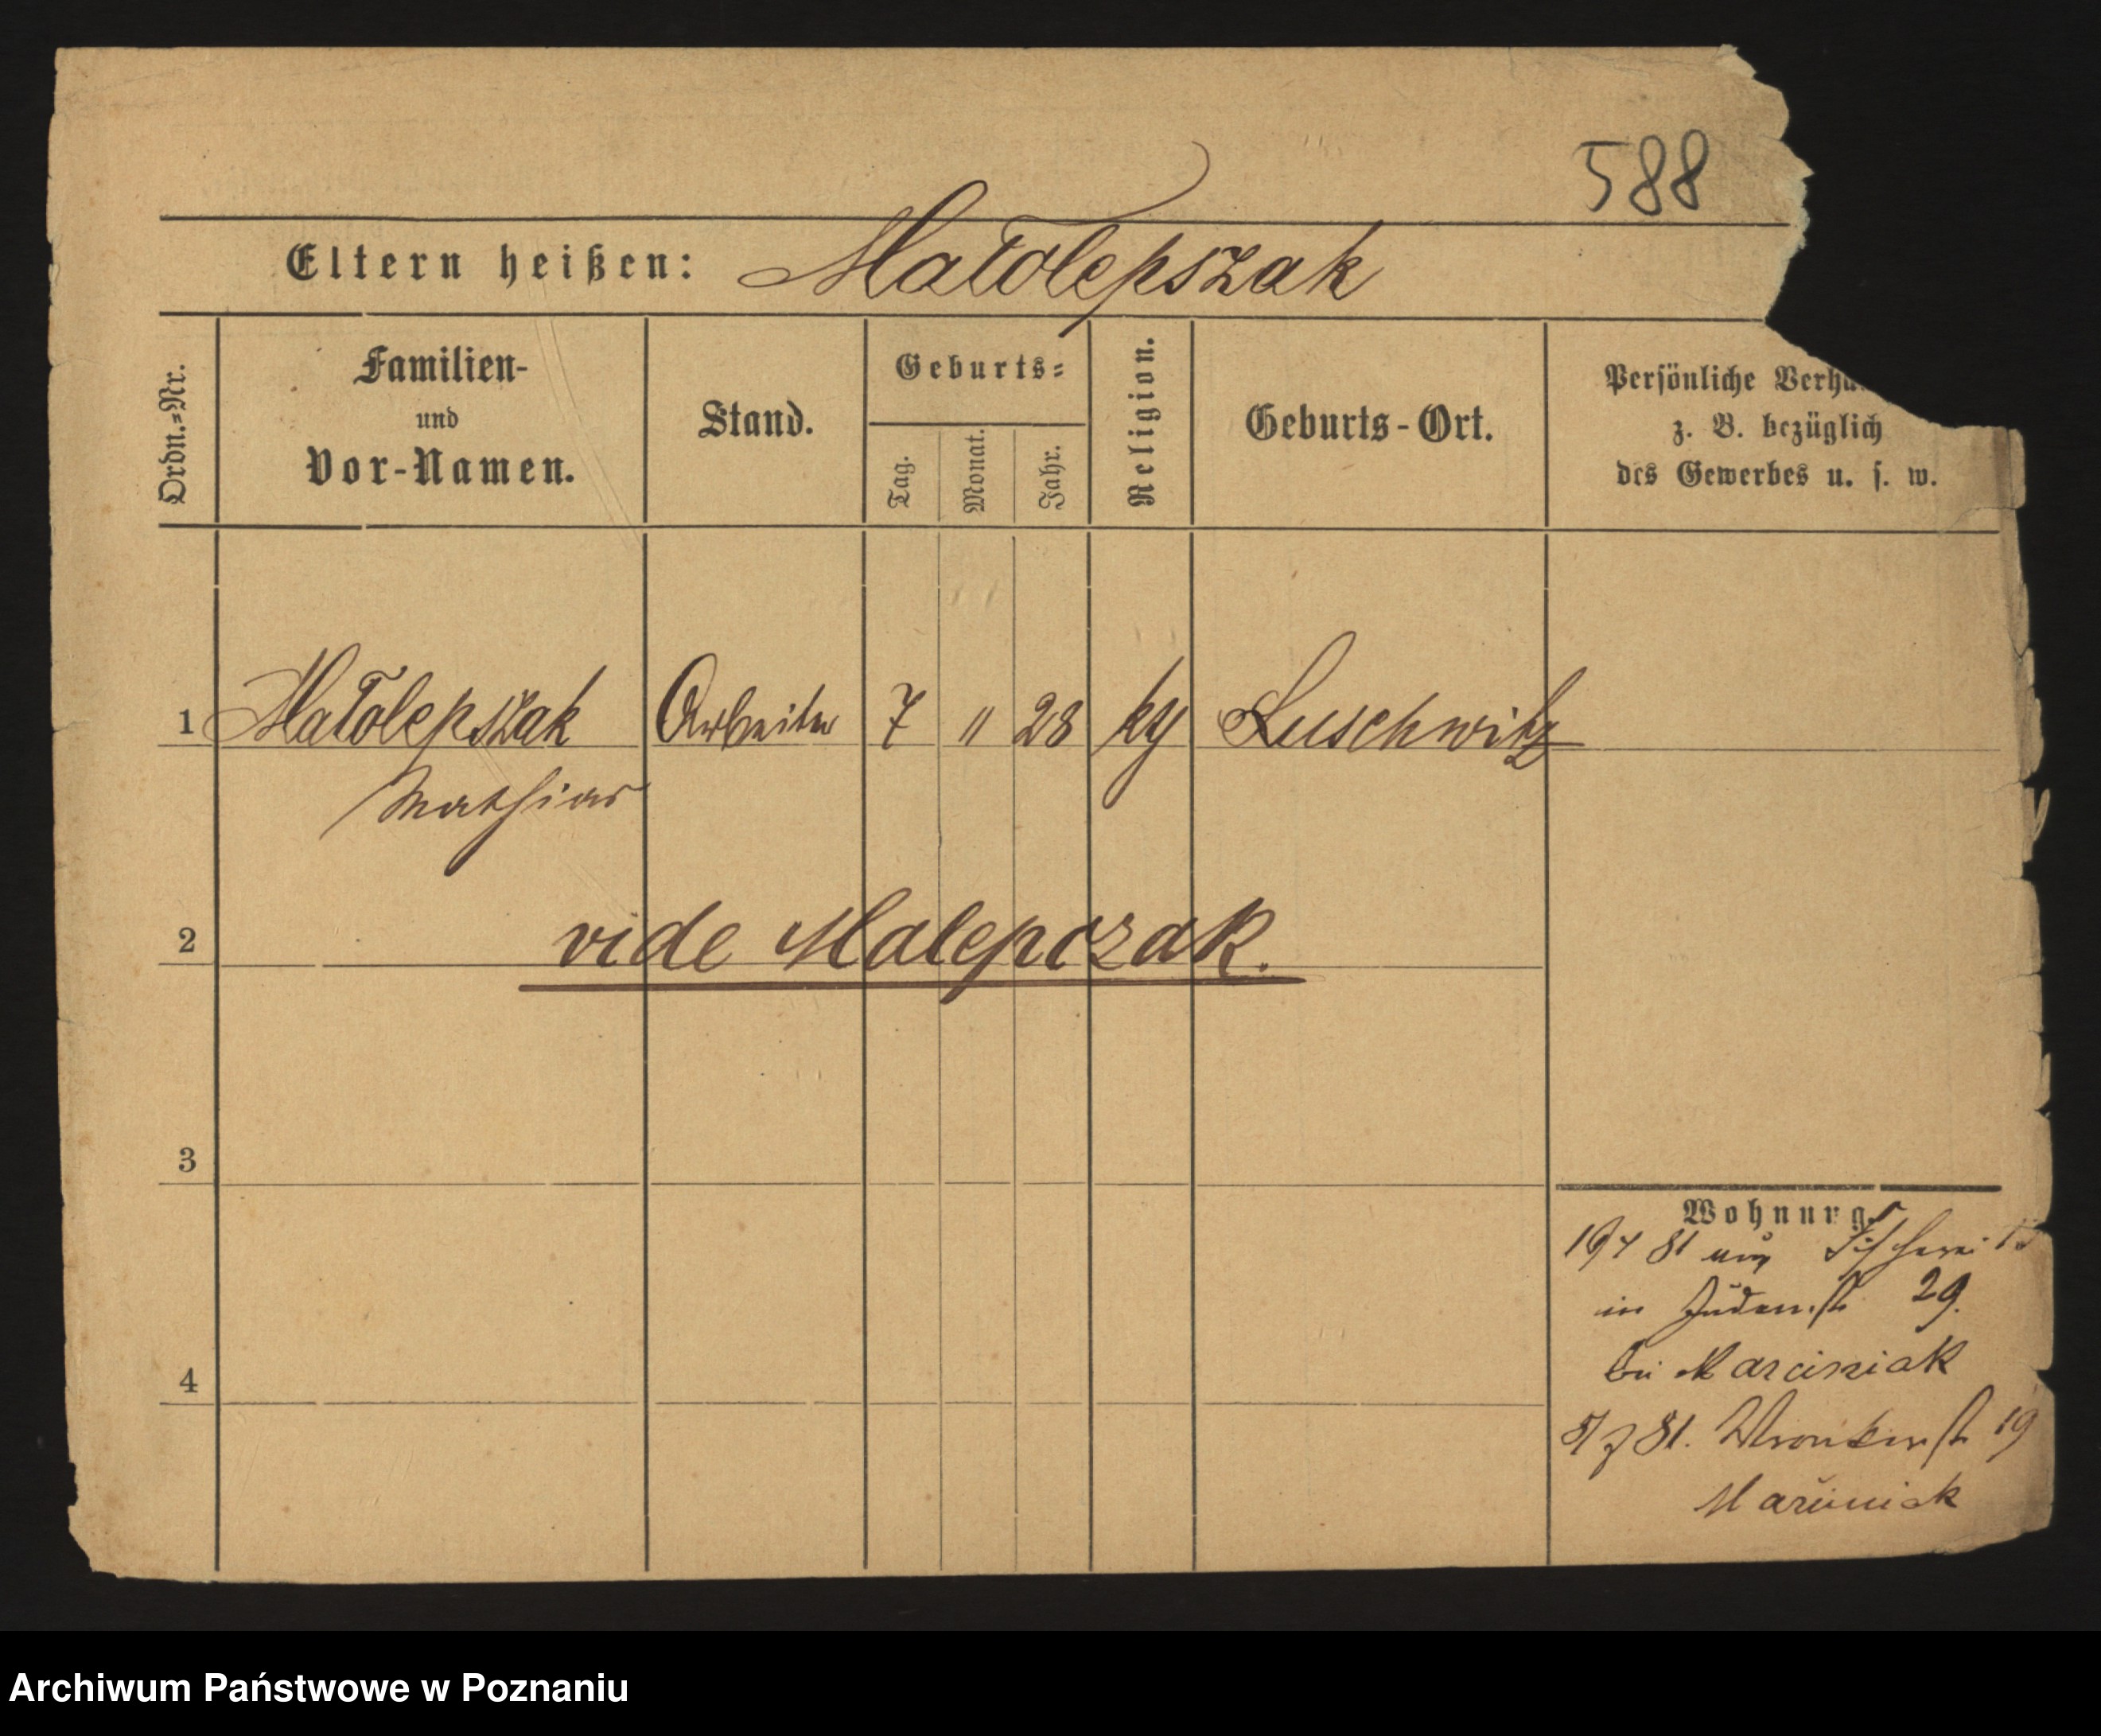 588
Eltern heißen: Małolepszak
Ordn.=Nr.
Familien-
und
Vor-Namen.
Stand.
Geburts=
Tag.
Monat.
Jahr.
Religion.
Geburts-Ort.
Persönliche
z. B. bezüglich
des Gewerbes u. s. w.
1 Małolepszak Arbeiter 7 " 28 Luschwitz
Mathias
2 vide Malepczak.
3
4
Wohnung
81 Fischerei
in Judenst 29.
bei Marciniak
81. Wronkerst 19
Marciniak
Archiwum Państwowe w Poznaniu